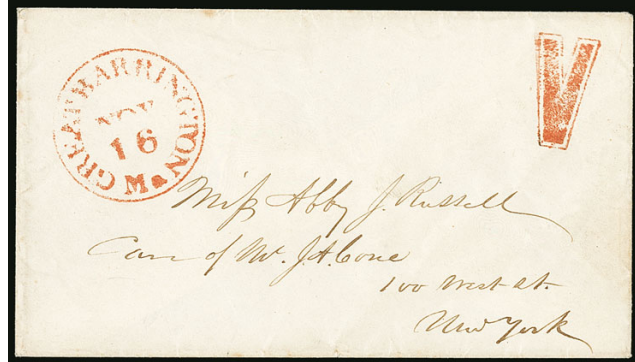 GREAT BARRINGTON Ma
NOV
16
V
Miss Abby J. Russell
Care of Mr. J. A. Cone
100 West St.
New York